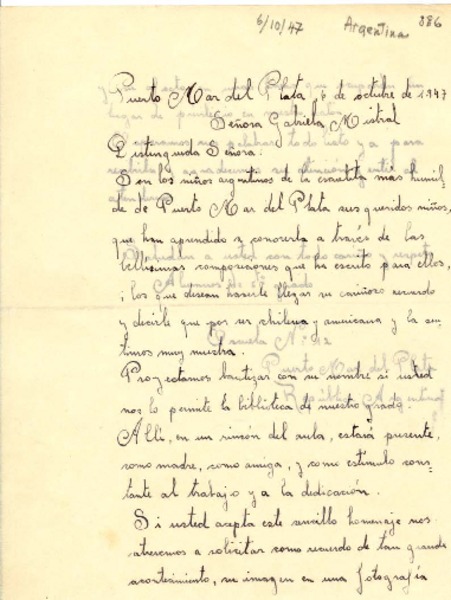 6/10/47 Argentina 386
Puerto Mar del Plata, 6 de octubre de 1947
Señora Gabriela Mistral
Distinguida Señora:
Son los niños argentinos de la escuelita más humil-
de de Puerto Mar del Plata sus queridos niños,
que han aprendido a conocerla a través de las
bellísimas composiciones que ha escrito para ellos,
los que desean hacerle llegar su cariñoso recuerdo
y decirle que por ser chilena y americana y la sen-
timos muy nuestra.
Proyectamos bautizar con su nombre si usted
nos lo permite la biblioteca de nuestro grado.
Allí, en un rincón del aula, estará presente,
como madre, como amiga, y como estímulo cons-
tante al trabajo y a la dedicación.
Si usted acepta este sencillo homenaje nos
atrevemos a solicitar como recuerdo de tan grande
acontecimiento, su imagen en una fotografía